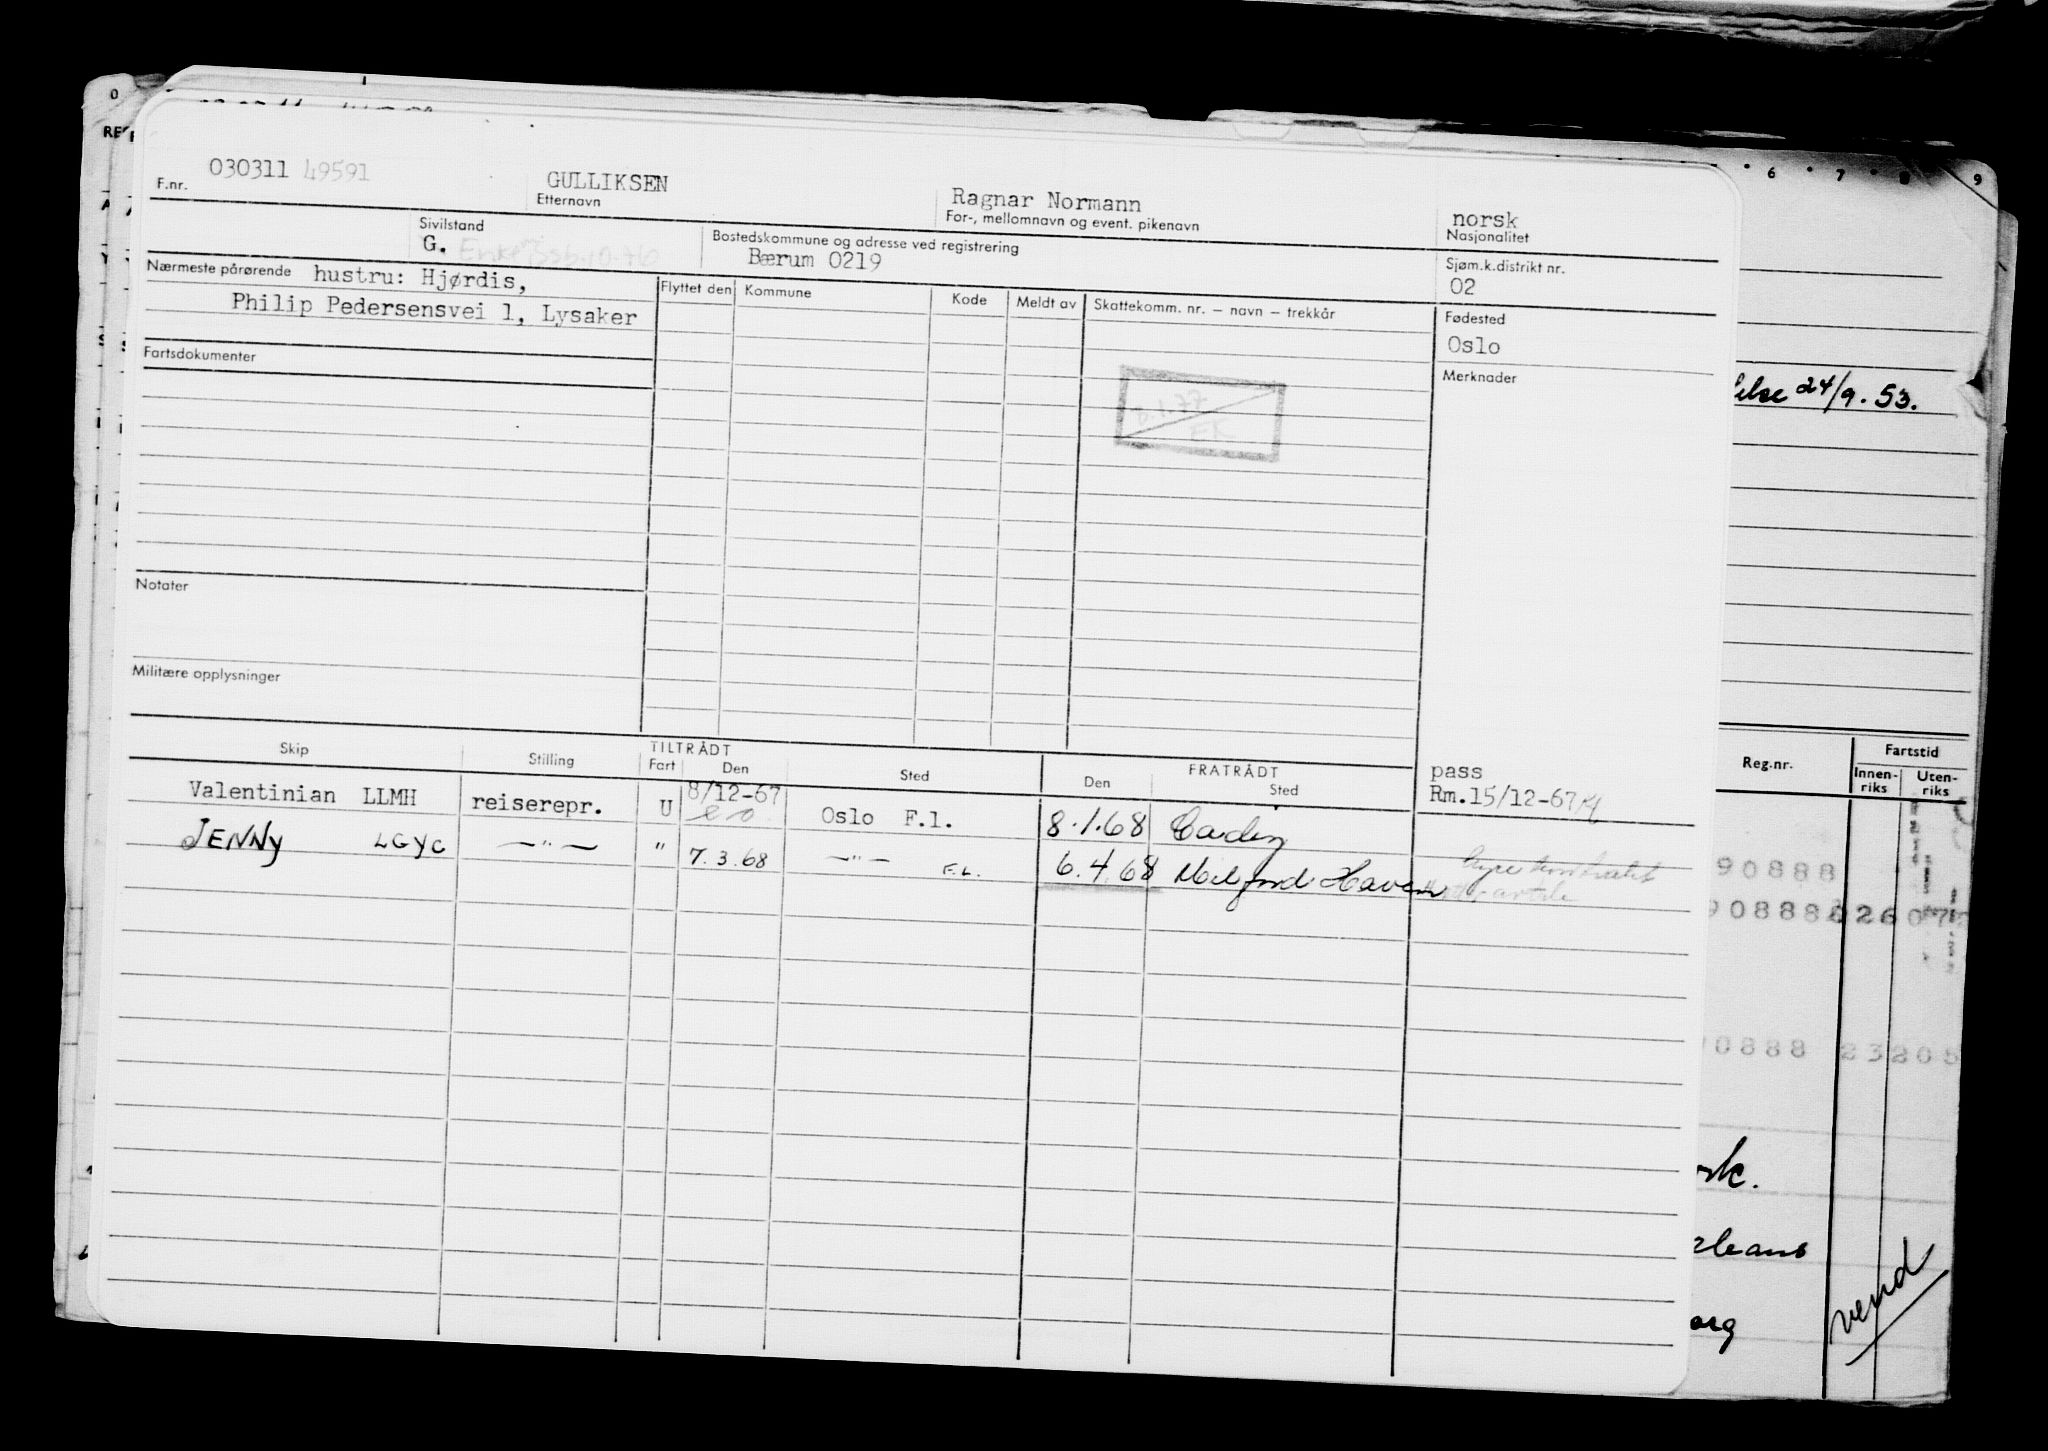 030311 49591
F.nr.
GULLIKSEN
Etternavn
Ragnar Normann
For-, mellomnavn og event. pikenavn
norsk
Nasjonalitet
Sivilstand
G.
Bostedskommune og adresse ved registrering
Bærum 0219
Sjøm.k.distrikt nr.
02
Nærmeste pårørende hustru: Hjørdis,
Philip Pedersensvei 1, Lysaker
Flyttet den Kommune Kode Meldt av Skattekomm. nr. – navn – trekkår
Fødested
Oslo
Fartsdokumenter
Merknader
6.1.77
EK
Notater
Militære opplysninger
Skip Stilling TILTRÅDT Fart Den Sted FRATRÅDT Den Sted
pass
Rm.15/12-67
Valentinian LLMH reiserepr. U 8/12-67 Oslo F.l. 8.1.68
JENNY LGYC —"— " 7.3.68 —"— F.L. 6.4.68 Milford Haven
6 7 8 9
24/9.53.
Reg.nr. Fartstid
Innen-riks Uten-riks
90888
0888
rk.
leans
org
vend